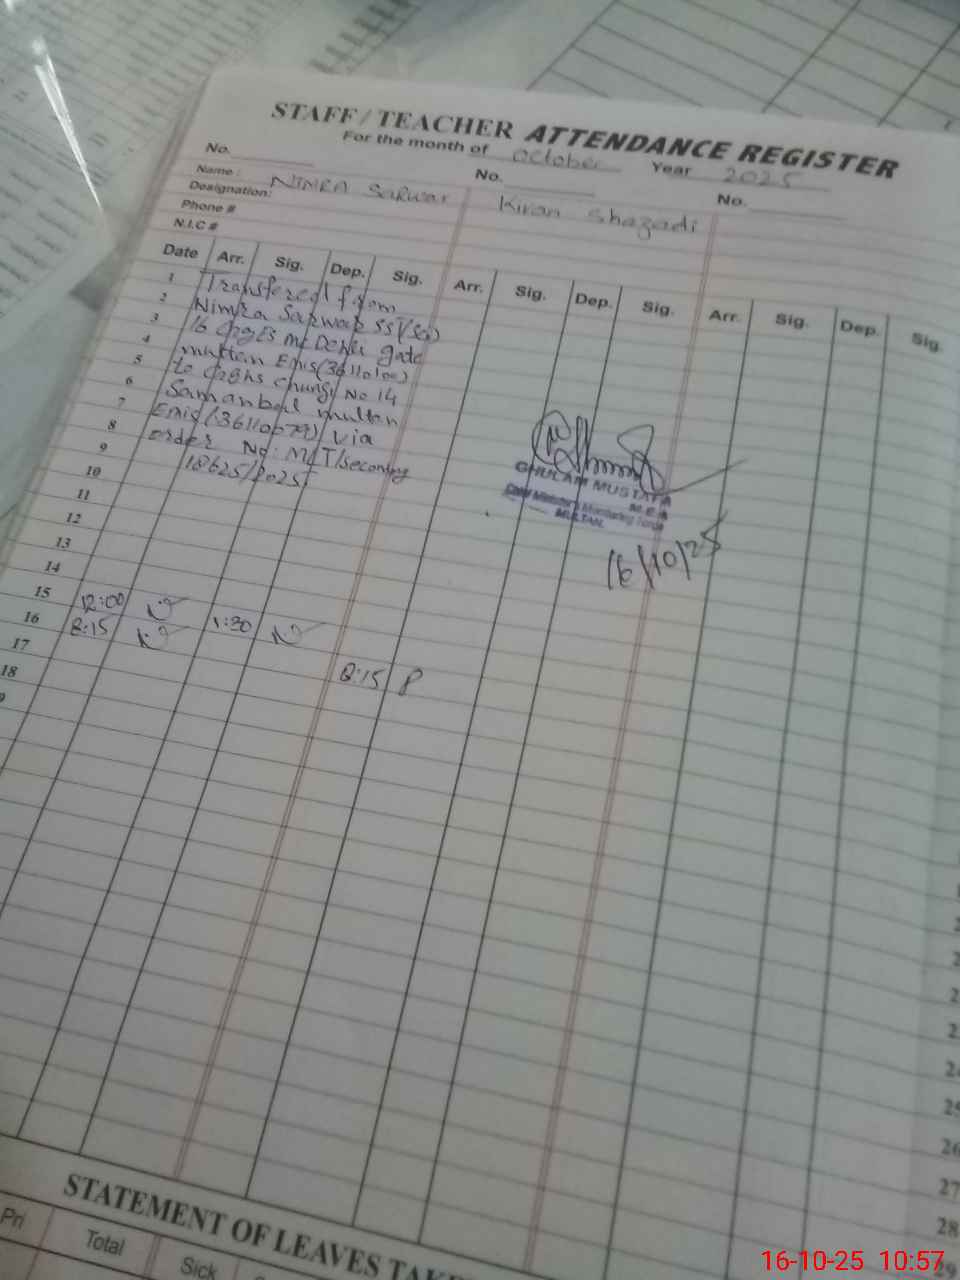 STAFF / TEACHER ATTENDANCE REGISTER
For the month of October Year 2025
No. No. No.
Name: NIMRA Sarwar Kiran Shazadi
Designation:
Phone #
N.I.C #
Date Arr. Sig. Dep. Sig. Arr. Sig. Dep. Sig. Arr. Sig. Dep. Sig.
1 Transfered from
2 Nimra Sarwar SST(Sc)
3 16 GGES MC Dehli gate
4 multan Emis(36110100)
5 to GGHS Chungi No 14
6 Samanbad multan
7 Emis(36110079) via
8 order No: MLT/Secondry
9 18625/2025
10
11
12
13
14
15 12:00 1:30
16 8:15
17 8:15 P
18
9
GHULAM MUSTAFA
M.E.A
Chief Minister's Monitoring Force
MULTAN.
16/10/25
24
25
26
27
28
29
STATEMENT OF LEAVES TAKE
Pri Total Sick
16-10-25 10:57